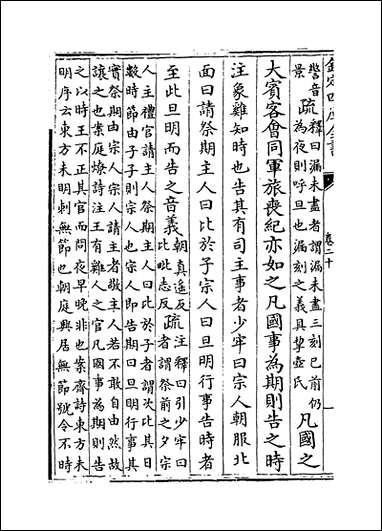 欽定四庫全書
卷二十
警音
景
疏
釋曰漏未盡者謂漏未盡三刻已前仍
為夜則呼旦也漏刻之義具挈壺氏
凡國之
大賓客會同軍旅喪紀亦如之凡國事為期則告之時
注象雞知時也告其有司主事者少牢曰宗人朝服北
面曰請祭期主人曰比於子宗人曰旦明行事告時者
至此旦明而告之音義
朝直遥反
比毗志反
疏
注釋曰引少牢曰
者謂祭前之夕宗
人主禮官請主人祭期主人曰比於子者謂次比其日
數時節由子子則宗人也宗人即告期曰旦明行事其
實祭期由宗人宗人請主者敬主人若不敢自由然故
讓之也案庭燎詩注王有雞人之官凡國事為期則告
之以時王不正其官而問夜早晚非也案齊詩東方未
明序云東方未明刺無節也朝庭興居無節號令不時